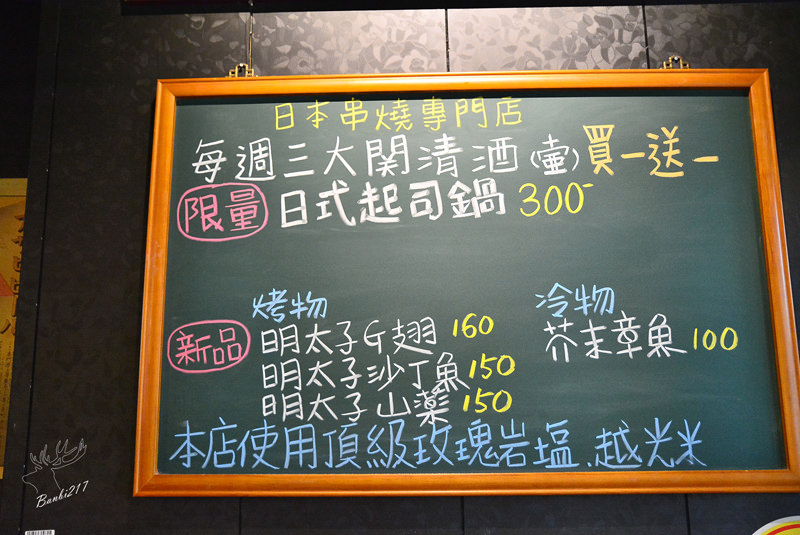 日本串燒專門店
每週三大関清酒(壷)買一送一
限量 日式起司鍋 300-
烤物 冷物
新品 明太子G翅 160 芥末章魚 100
明太子沙丁魚 150
明太子山藥 150
本店使用頂級玫瑰岩塩.越光米
Banbi217